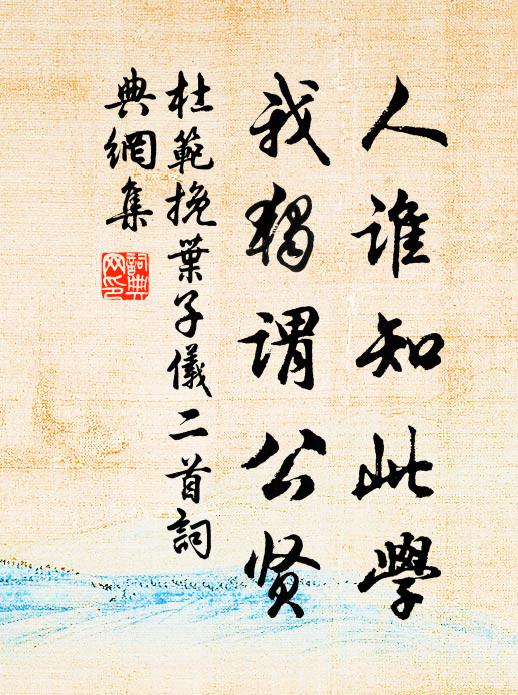 人谁知此學
我独谓公贤
杜範挽葉子儀二首詞
典網集
詞典网印